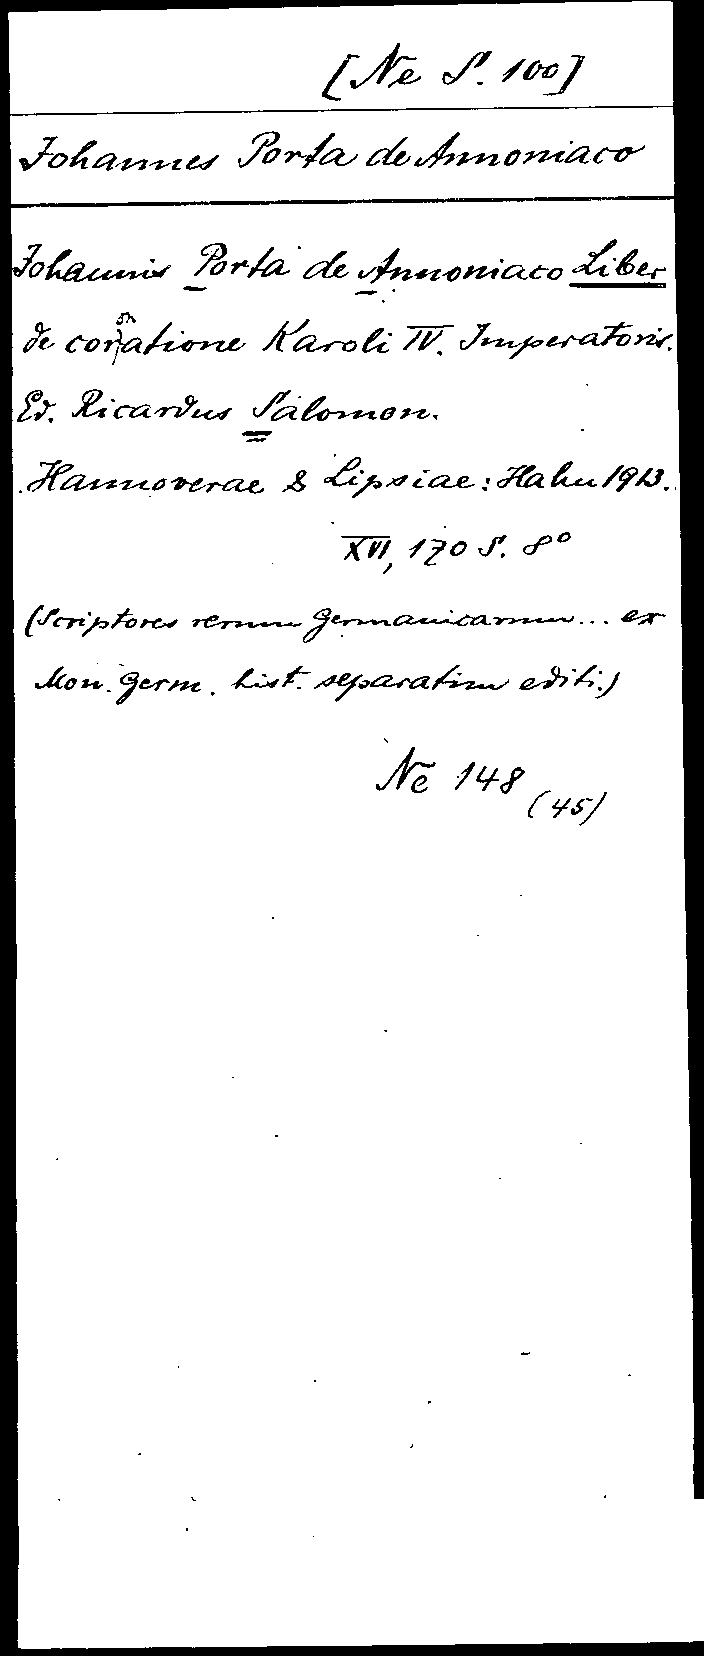 [Ne S. 100]
Johannes Porta de Annoniaco
Johannis Porta de Annoniaco Liber
de coronatione Karoli IV. Imperatoris.
Ed. Ricardus Salomon.
Hannoverae & Lipsiae: Hahn 1913.
XVI, 170 S. 8°
(Scriptores rerum Germanicarum... ex
Mon. Germ. hist. separatim editi.)
Ne 148 (45)